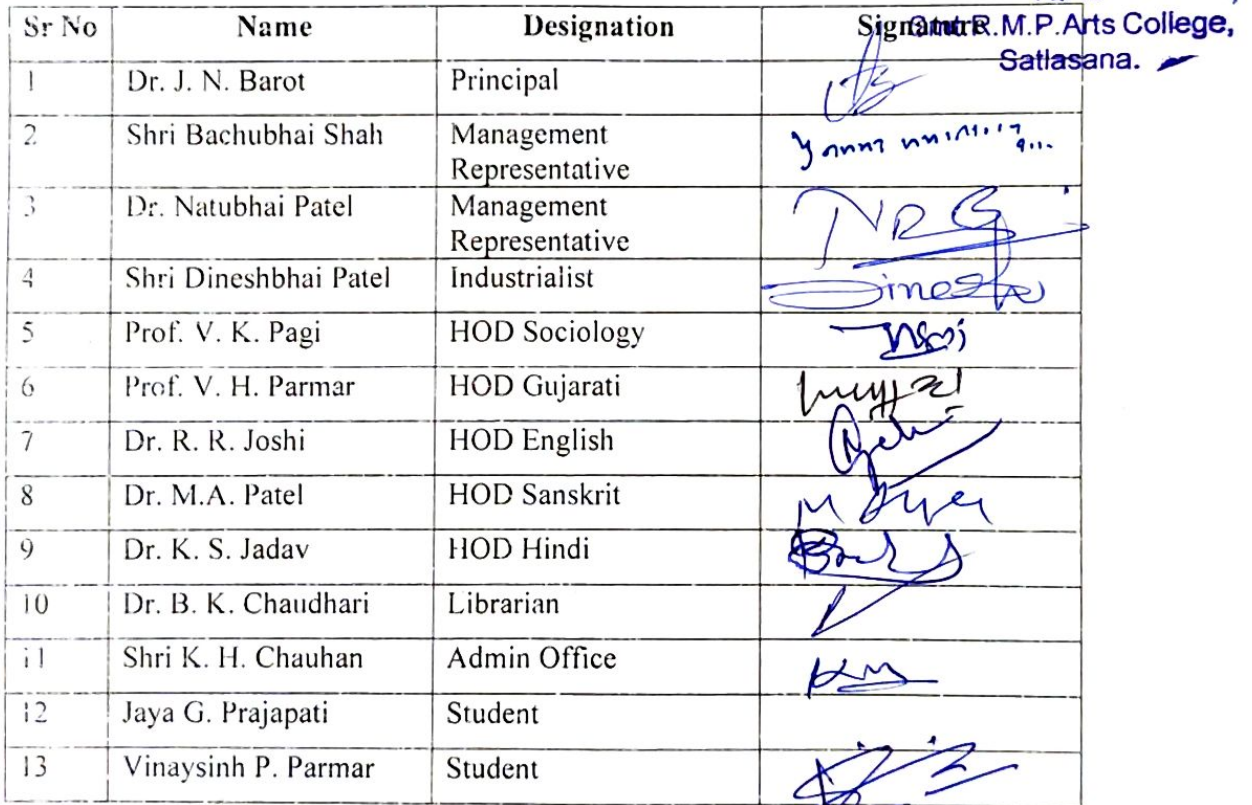 Sr No Name Designation Signature
R.M.P.Arts College,
Satlasana.
1 Dr. J. N. Barot Principal
2 Shri Bachubhai Shah Management
Representative
3 Dr. Natubhai Patel Management
Representative
4 Shri Dineshbhai Patel Industrialist Dinesh
5 Prof. V. K. Pagi HOD Sociology
6 Prof. V. H. Parmar HOD Gujarati
7 Dr. R. R. Joshi HOD English
8 Dr. M.A. Patel HOD Sanskrit
9 Dr. K. S. Jadav HOD Hindi
10 Dr. B. K. Chaudhari Librarian
11 Shri K. H. Chauhan Admin Office
12 Jaya G. Prajapati Student
13 Vinaysinh P. Parmar Student